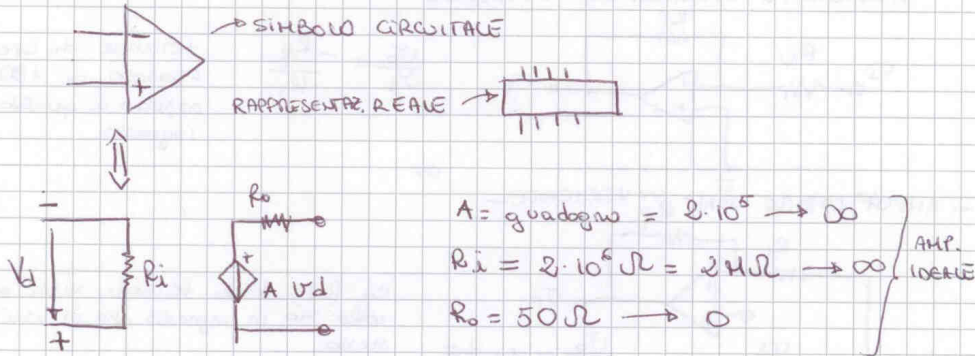 SIMBOLO CIRCUITALE
RAPPRESENTAZ. REALE
−
+
−
Vd
+
Ri
Ro
+
A Vd
A = guadagno = 2·10⁵ → ∞
Ri = 2·10⁶ Ω = 2MΩ → ∞
Ro = 50 Ω → 0
AMP.
IDEALE